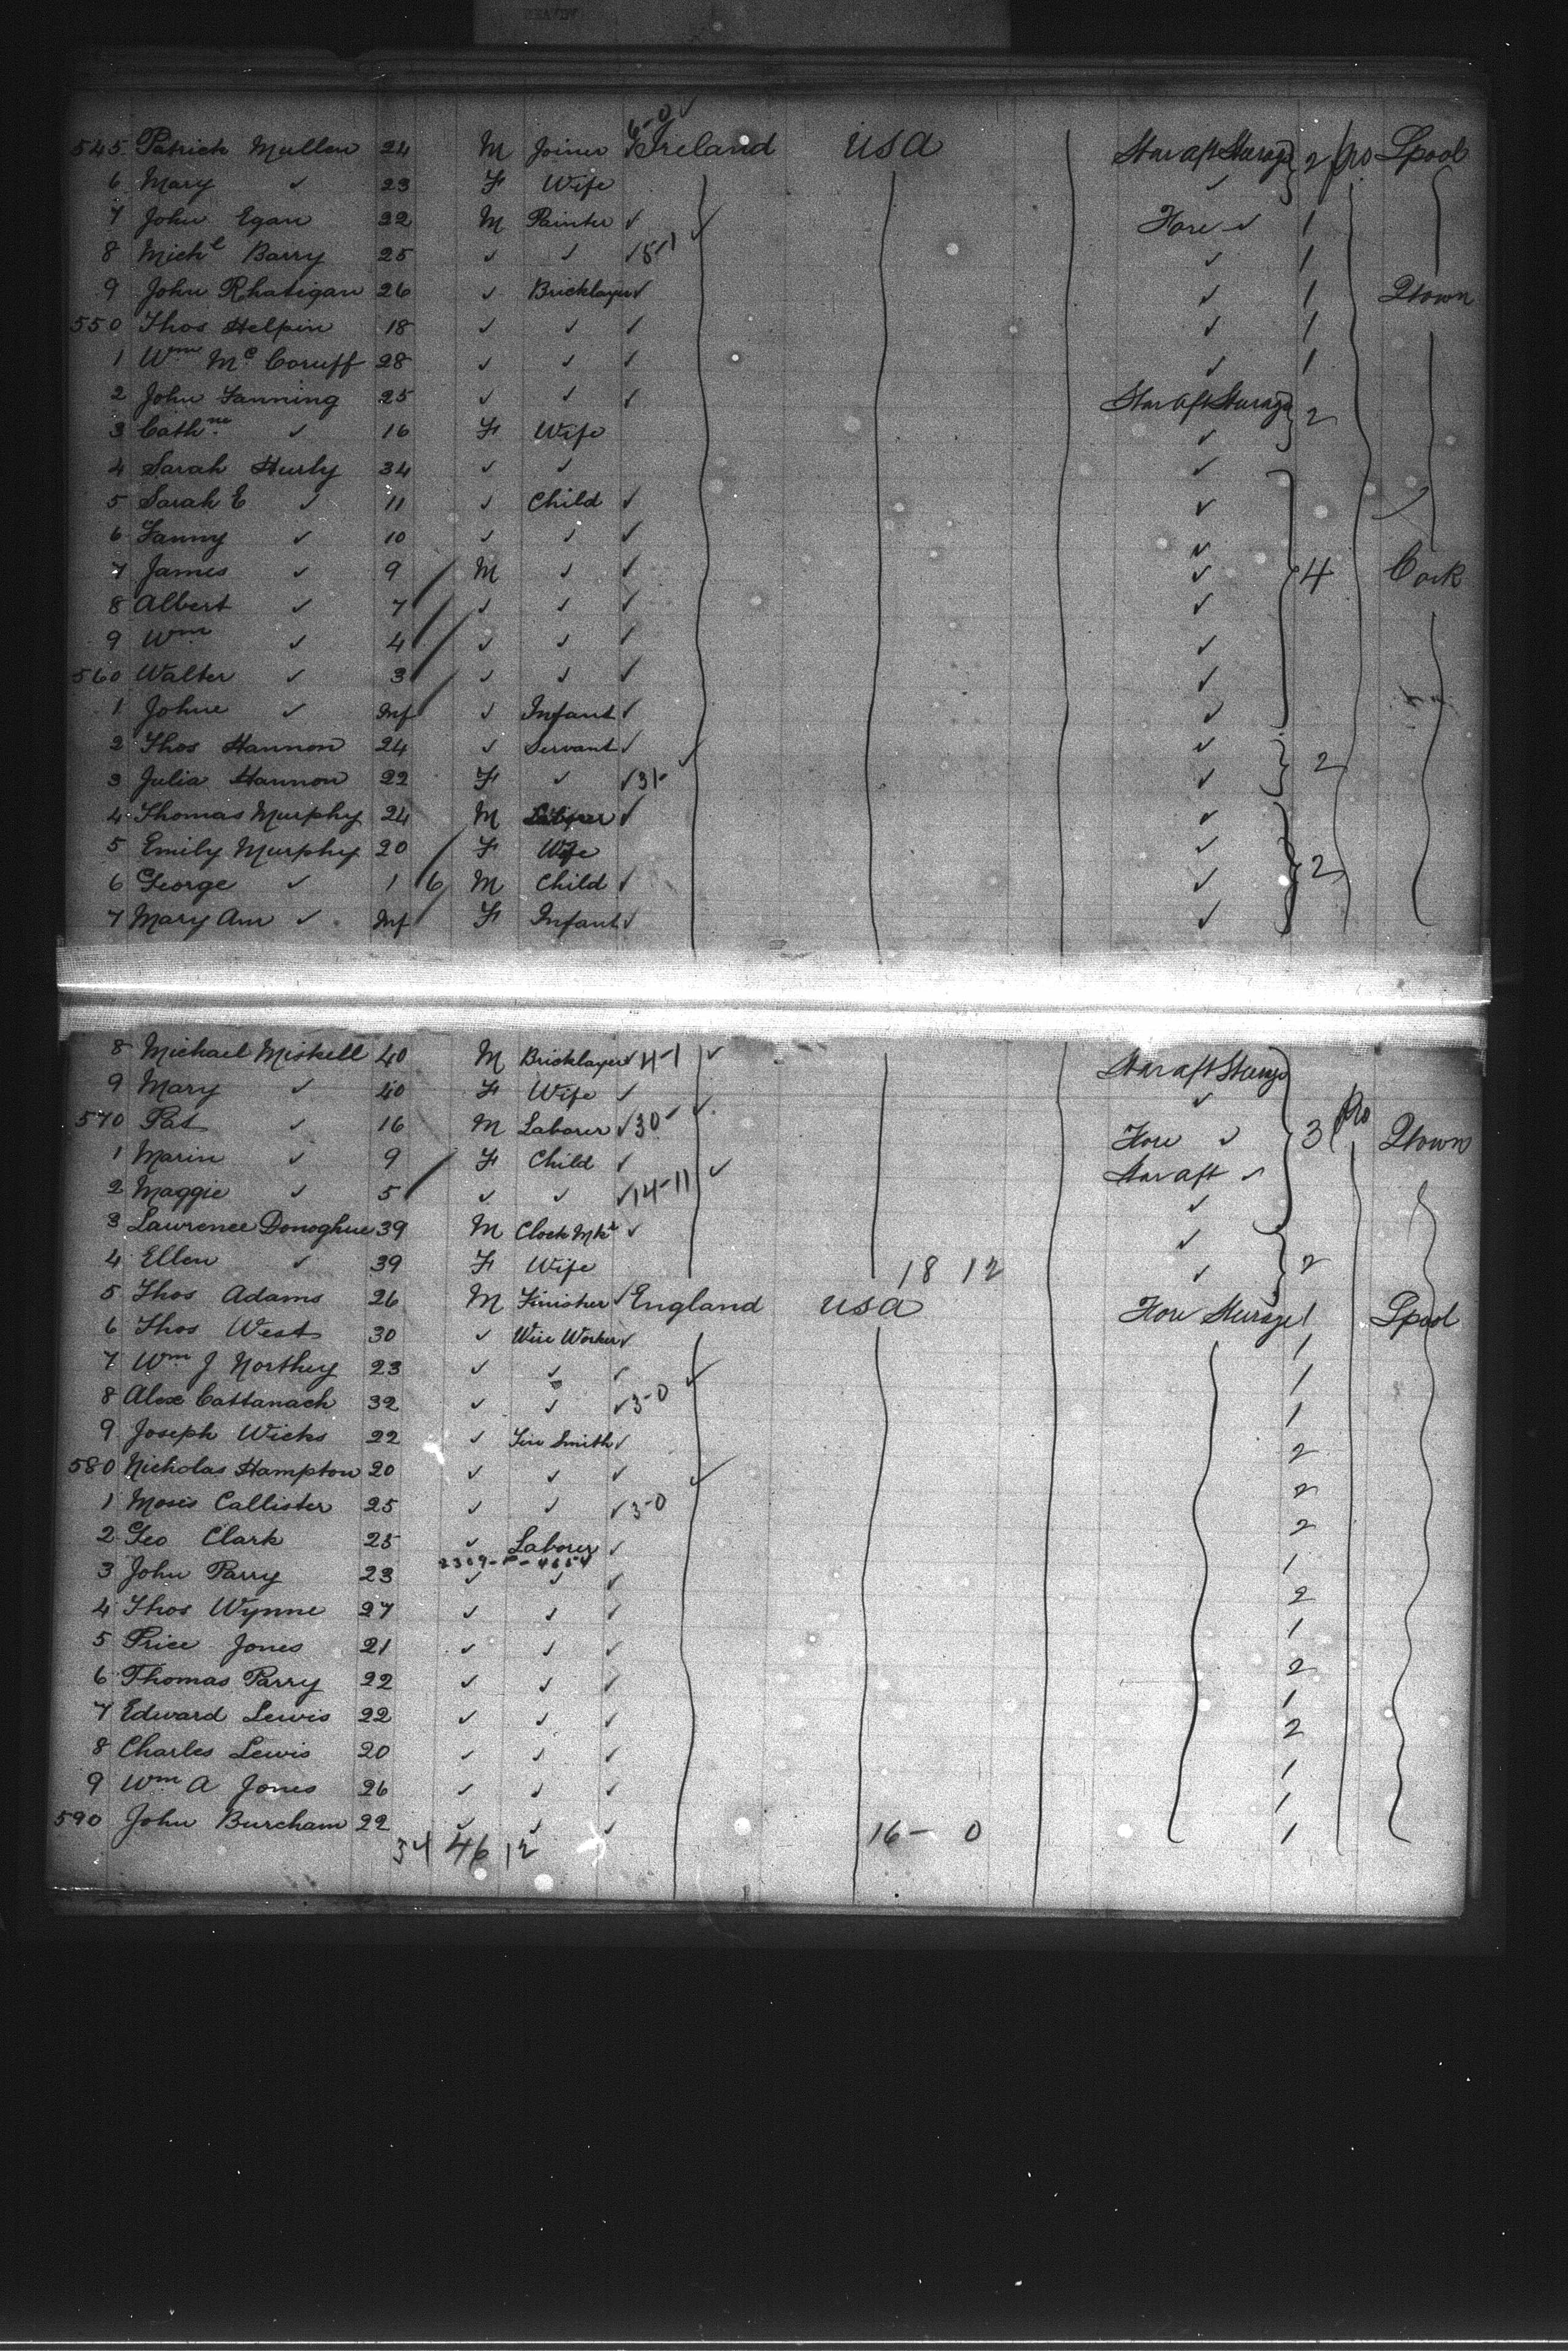 6-0 ✓
545 Patrick Mullen 24 M Joiner ✓ Ireland USA Star aft Sterage 2 Pro Lpool
6 Mary ✓ 23 F Wife ✓
7 John Egan 22 M Painter ✓ ✓ Fore ✓ 1
8 Michl Barry 25 ✓ ✓ ✓ ✓ 1
9 John Rhatigan 26 ✓ Bricklayer ✓ ✓ 1 Qtown
550 Thos Helpin 18 ✓ ✓ ✓ ✓ 1
1 Wm Mc Coruff 28 ✓ ✓ ✓ ✓ 1
2 John Fanning 25 ✓ ✓ ✓ Star aft Sterage 2
3 Cathne ✓ 16 F Wife ✓
4 Sarah Hurly 34 ✓ ✓ ✓
5 Sarah E ✓ 11 ✓ Child ✓ ✓
6 Fanny ✓ 10 ✓ ✓ ✓ ✓
7 James ✓ 9 M ✓ ✓ ✓ 4 Cork
8 Albert ✓ 7 ✓ ✓ ✓ ✓
9 Wm ✓ 4 ✓ ✓ ✓ ✓
560 Walter ✓ 3 ✓ ✓ ✓ ✓
1 Johne ✓ Inf ✓ Infant ✓ ✓
2 Thos Hannon 24 ✓ Servant ✓ ✓ ✓
3 Julia Hannon 22 F ✓ ✓ 31- ✓ 2
4 Thomas Murphy 24 M Laborer ✓ ✓
5 Emily Murphy 20 F Wife ✓
6 George ✓ 1 6 M Child ✓ ✓ 2
7 Mary Ann ✓ Inf F Infant ✓ ✓
8 Michael Miskell 40 M Bricklayer ✓ 4-1 ✓ Star aft Sterage
9 Mary ✓ 40 F Wife ✓ ✓
570 Pat ✓ 16 M Laborer ✓ 30- ✓ Fore ✓ 3 Pro Qtown
1 Marin ✓ 9 F Child ✓ Star aft ✓
2 Maggie ✓ 5 ✓ ✓ ✓ 14-11 ✓ ✓
3 Lawrence Donoghue 39 M Clock Mkr ✓ ✓
4 Ellen ✓ 39 F Wife 18 12 ✓ 2
5 Thos Adams 26 M Finisher ✓ England USA Fore Sterage 1 Lpool
6 Thos West 30 ✓ Wire Worker ✓ 1
7 Wm J Northey 23 ✓ ✓ ✓ ✓ 1
8 Alex Cattanach 32 ✓ ✓ ✓ 3-0 1
9 Joseph Wicks 22 ✓ Smith ✓ 2
580 Nicholas Hampton 20 ✓ ✓ ✓ ✓ 2
1 Moses Callister 25 ✓ ✓ ✓ 3-0 2
2 Geo Clark 25 ✓ Laborer ✓ 1
3 John Parry 23 ✓ ✓ ✓ 2
4 Thos Wynne 27 ✓ ✓ ✓ 1
5 Price Jones 21 ✓ ✓ ✓ 2
6 Thomas Parry 22 ✓ ✓ ✓ 1
7 Edward Lewis 22 ✓ ✓ ✓ 2
8 Charles Lewis 20 ✓ ✓ ✓ 1
9 Wm A Jones 26 ✓ ✓ ✓ 1
590 John Burcham 22 ✓ ✓ ✓ 16- 0 1
34 46 12